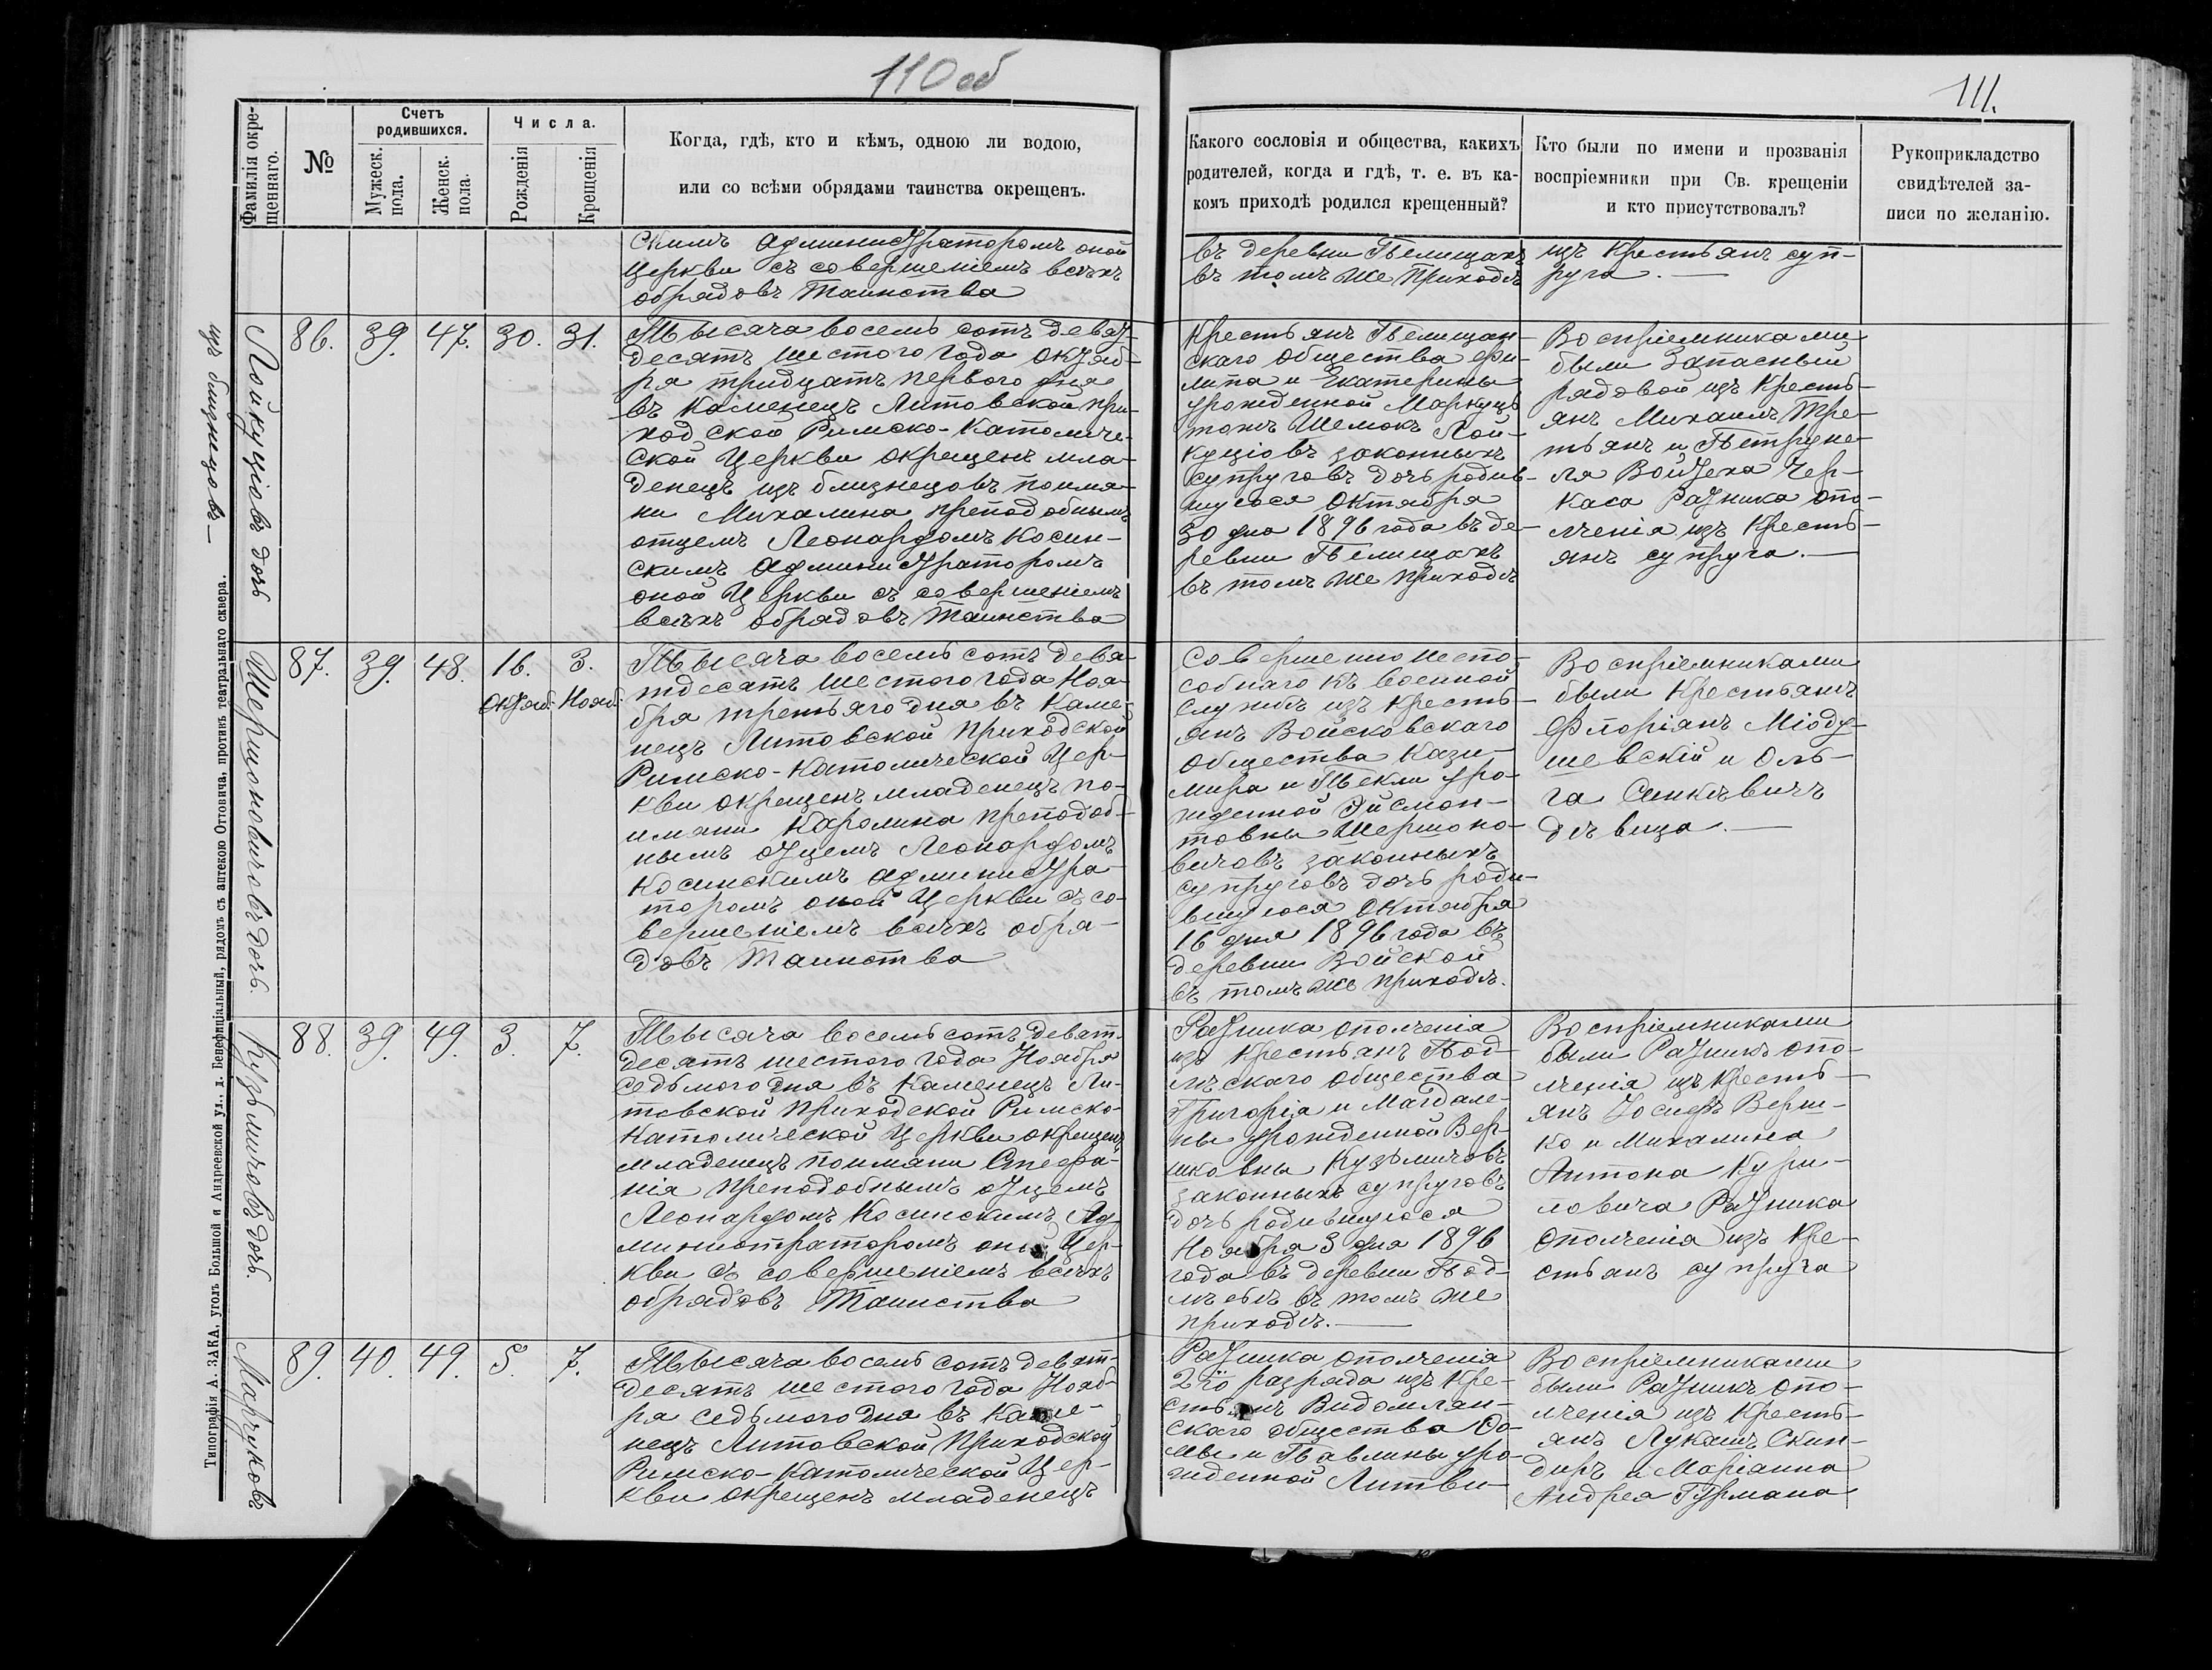 110 об
111.
Фамилія окре-
щеннаго.
№
Счетъ
родившихся.
Мужеск.
пола.
Женск.
пола.
Числа.
Рожденія
Крещенія
Когда, гдѣ, кто и кѣмъ, одною ли водою,
или со всѣми обрядами таинства окрещенъ.
Какого сословія и общества, какихъ
родителей, когда и гдѣ, т. е. въ ка-
комъ приходѣ родился крещенный?
Кто были по имени и прозванія
воспріемники при Св. крещеніи
и кто присутствовалъ?
Рукоприкладство
свидѣтелей за-
писи по желанію.
скимъ Администраторомъ оной
Церкви съ совершеніемъ всѣхъ
обрядовъ Таинства
въ деревни Пелищахъ
въ томъ же Приходѣ
изъ Крестьянъ суп-
руга.
Лойкуціовъ дочь
изъ близнецовъ
86.
39.
47.
30.
31.
Тысяча восемь сотъ девят-
десятъ шестого года октяб-
ря тридцать перваго дня
въ Каменецъ Литовской при-
ходской Римско-Католиче-
ской Церкви окрещенъ мла-
денецъ изъ близнецовъ поимя-
ни Михалина преподобнымъ
отцемъ Леонардомъ Косин-
скимъ Администраторомъ
оной Церкви съ совершеніемъ
всѣхъ обрядовъ Таинства
Крестьянъ Пелищан-
скаго общества Фи-
липа и Екатерины
урожденной Маркуцъ
тожъ Шемокъ Лой-
куціовъ законныхъ
супруговъ дочь родив-
шуюся Октября
30 дня 1896 года въ де-
ревни Пелищахъ
въ томъ же приходѣ
Воспріемниками
были Запасный
рядовой изъ Кресть-
янъ Михаилъ Тре-
тьякъ и Петруне-
ля Войтеха Чер-
каса Ратника опо-
лченія изъ Кресть-
янъ супруга.
Шершоновичовъ дочь.
87.
39.
48.
16.
Октяб.
3.
Нояб.
Тысяча восемь сотъ девя-
тдесятъ шестого года Ноя-
бря третьяго дня въ Каме-
нецъ Литовской Приходской
Римско-Католической Цер-
кви окрещенъ младенецъ по-
имяни Каролина преподоб-
нымъ отцемъ Леонардомъ
Косинскимъ администра-
торомъ оной Церкви съ со-
вершеніемъ всѣхъ обря-
довъ Таинства
Совершенно неспо-
собнаго къ военной
службѣ изъ кресть-
янъ Войсковскаго
общества Кази-
мира и Теклы уро-
жденной Дисмон-
товны Шершоно-
вичовъ законныхъ
супруговъ дочь роди-
вшуюся Октября
16 дня 1896 года въ
деревни Войской
въ томъ же приходѣ.
Воспріемниками
были Крестьянъ
Флоріанъ Міоду-
шевскій и Оль-
га Санкевичъ
дѣвица.
Кузьмичовъ дочь.
88.
39.
49.
3.
7.
Тысяча восемь сотъ девят-
десятъ шестого года Ноября
седьмого дня въ Каменецъ Ли-
товской Приходской Римско-
Католической Церкви окрещенъ
младенецъ поимяни Стефа-
нія Преподобнымъ отцемъ
Леонардомъ Косинскимъ Ад-
министраторомъ оной Цер-
кви съ совершеніемъ всѣхъ
обрядовъ Таинства
Ратника ополченія
изъ Крестьянъ Под-
лѣскаго Общества
Григорія и Магдале-
ны урожденной Вер-
шковны Кузьмичовъ
законныхъ супруговъ
дочь родившуюся
Ноября 3 дня 1896
года въ деревни Под-
лѣсьѣ въ томъ же
приходѣ.
Воспріемниками
были Ратникъ опо-
лченія изъ Кресть-
янъ Іосифъ Верш-
ко и Михалина
Антона Кури-
ловича Ратника
Ополченія изъ Кре-
стьянъ супруга
Марчуковъ
89.
40.
49.
5.
7.
Тысяча восемь сотъ девят-
десятъ шестого года Нояб-
ря седьмого дня въ Каме-
нецъ Литовской Приходской
Римско-Католической Цер-
кви окрещенъ младенецъ
Ратника ополченія
2го разряда изъ Кре-
стьянъ Видомлян-
скаго общества Ѳо-
мы и Павлины уро-
жденной Литви-
Воспріемниками
были Ратникъ опо-
лченія изъ Кресть-
янъ Лукашъ Скин-
диръ и Маріанна
Андрея Гурмана
Типографія А. ЗАКА, уголъ Большой и Андреевской ул., д. Бенефиціальный, рядомъ съ аптекою Оттовича, противъ театральнаго сквера.